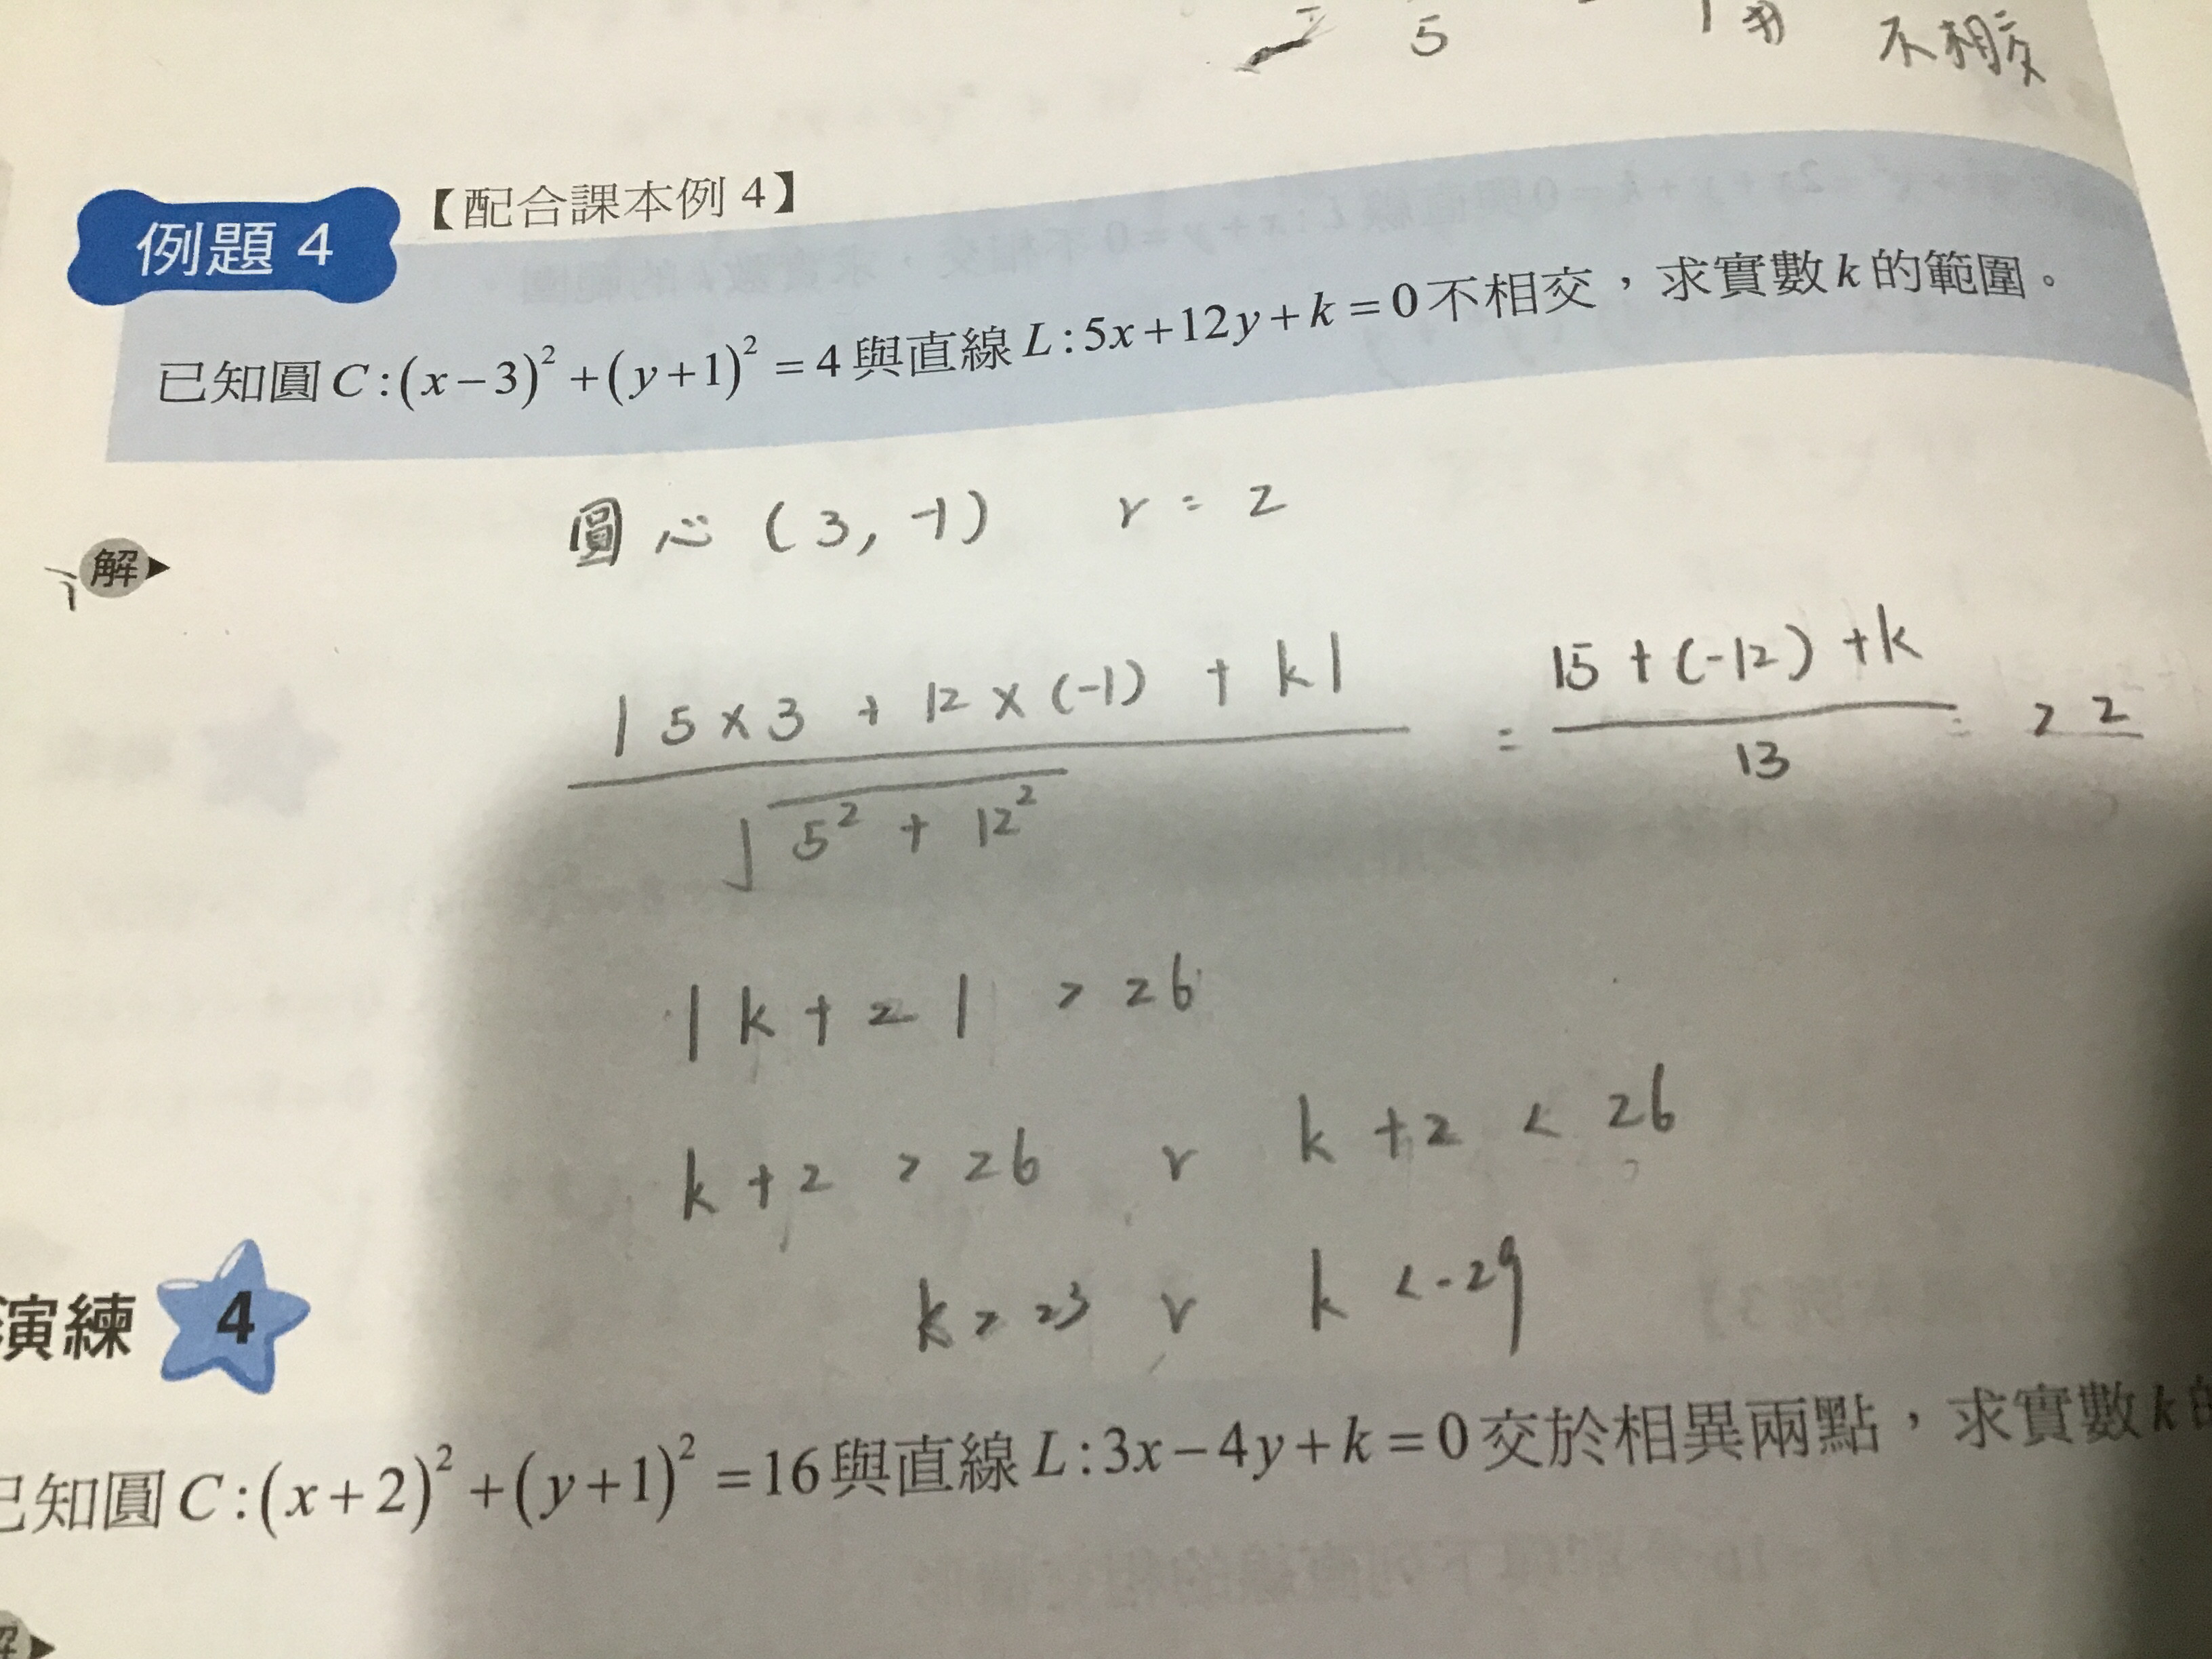 5 不相交
【配合課本例 4】
例題 4
已知圓 C:(x−3)²+(y+1)²=4 與直線 L:5x+12y+k=0 不相交，求實數 k 的範圍。
解
圓心 (3, -1) r = 2
|5×3 + 12×(-1) + k| / √(5² + 12²) = (15 + (-12) + k) / 13 = > 2
|k + 2| > 26
k + 2 > 26 r k + 2 < 26
k > 23 r k < -29
演練 4
已知圓 C:(x+2)²+(y+1)²=16 與直線 L:3x−4y+k=0 交於相異兩點，求實數 k 的